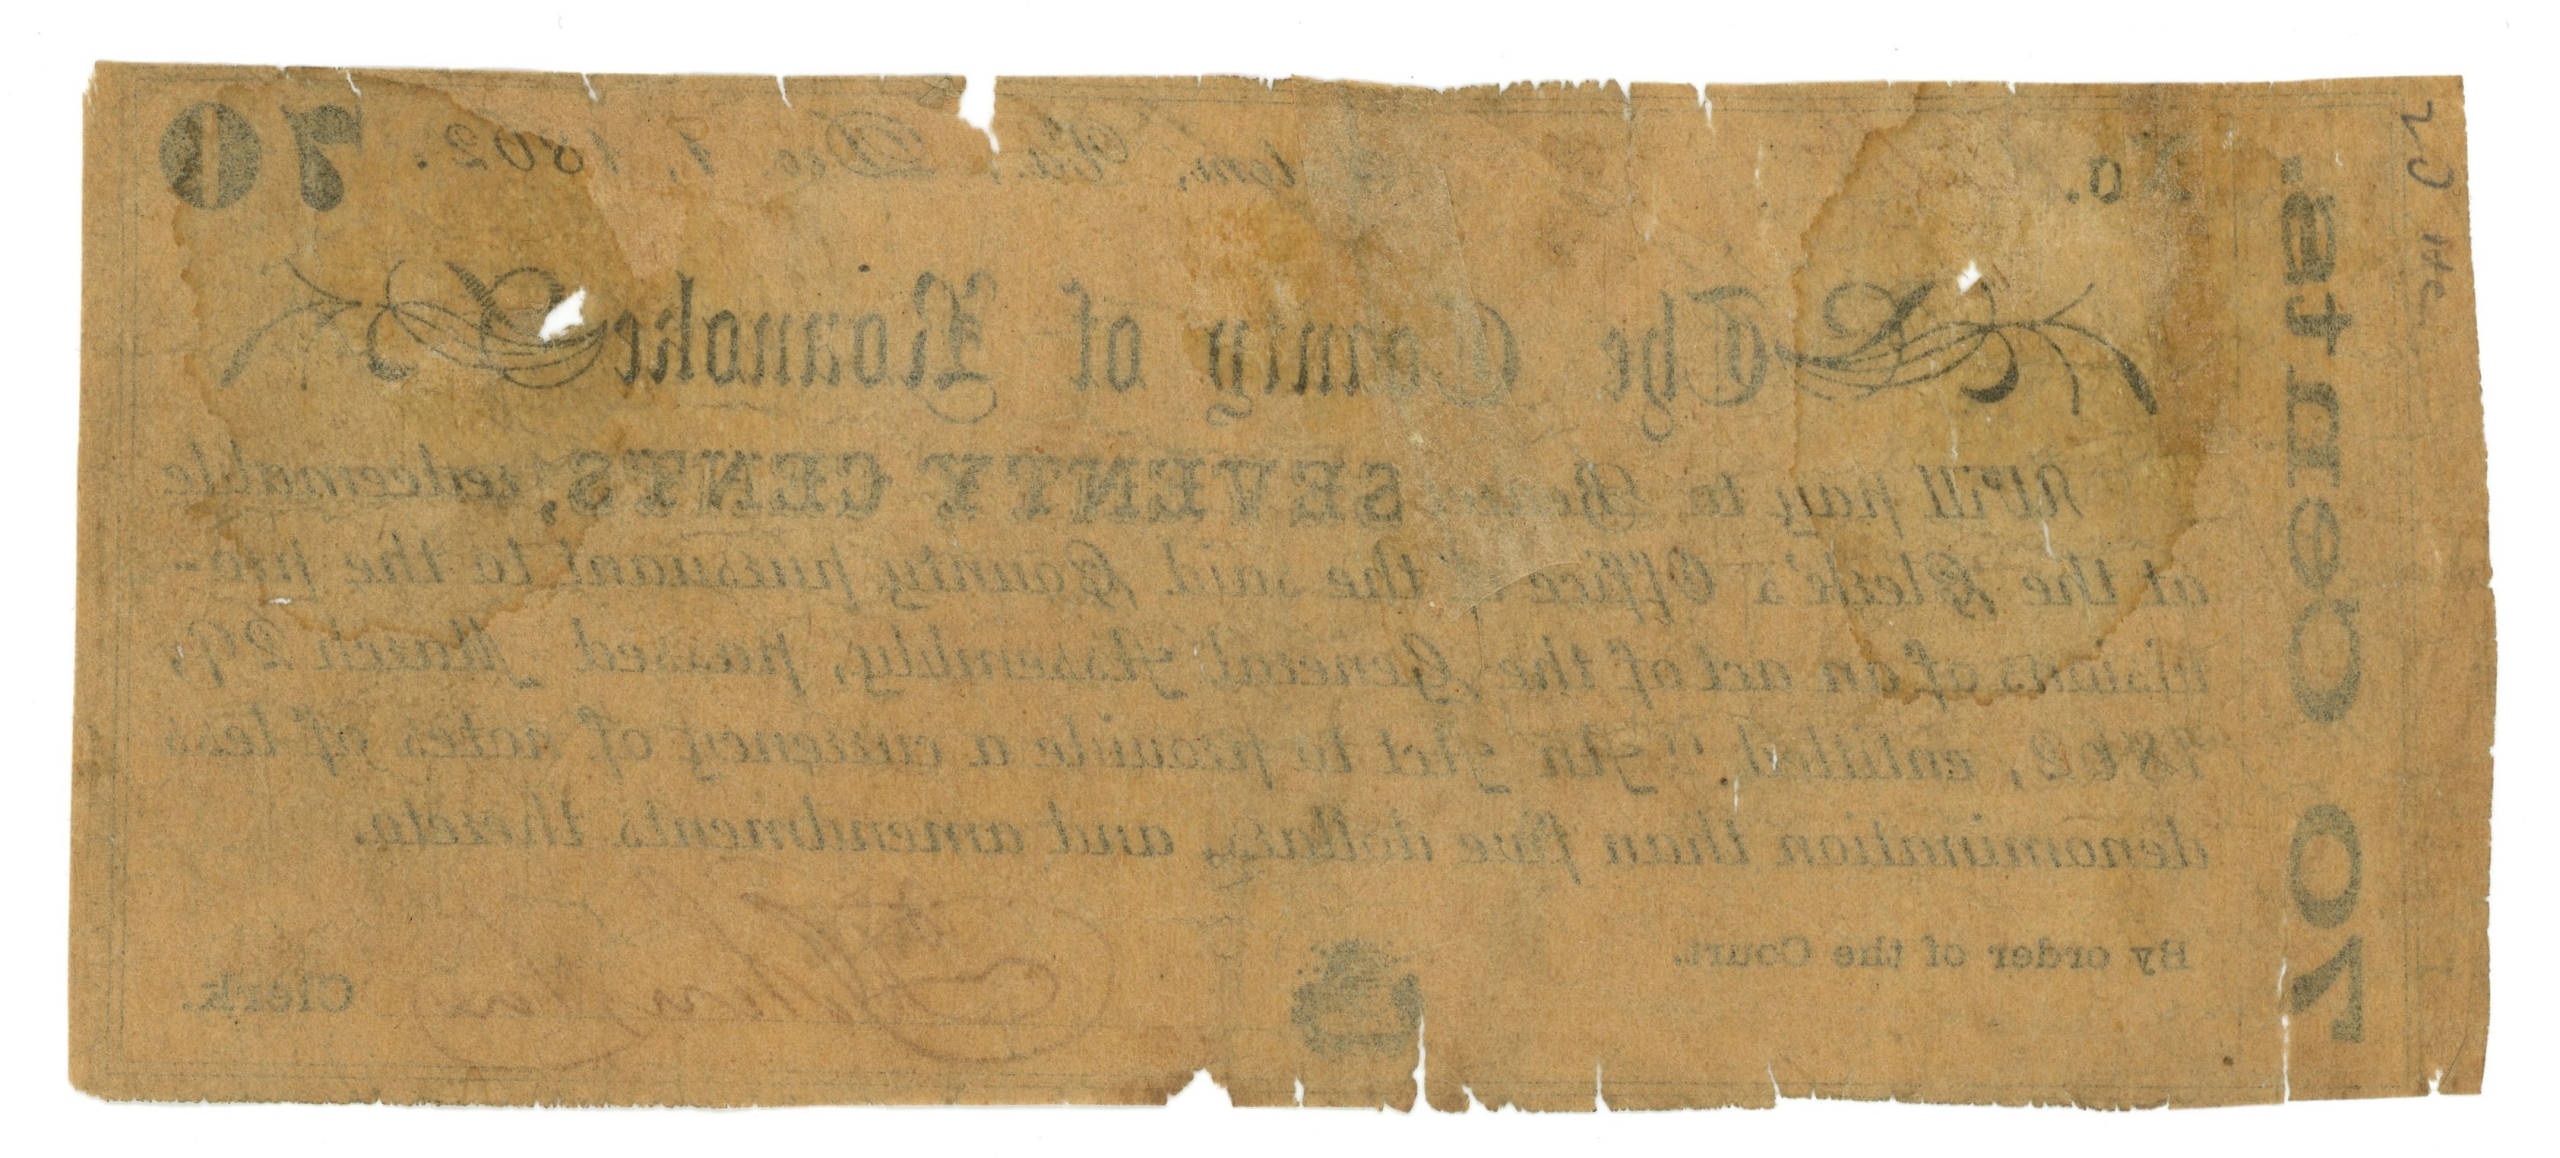 No.
Va., Dec. 1, 1862.
70
The County of Roanoke
Will pay to Bearer SEVENTY CENTS, redeemable
at the Clerk's Office of the said County pursuant to the pro-
visions of an act of the General Assembly, passed March 29,
1862, entitled, "An Act to provide a currency of notes of less
denomination than five dollars, and amendments thereto.
By order of the Court.
Clerk.
70 Cents.